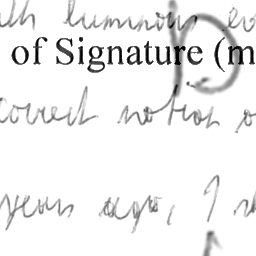 luminous
of Signature (m
correct notion
years ago, I